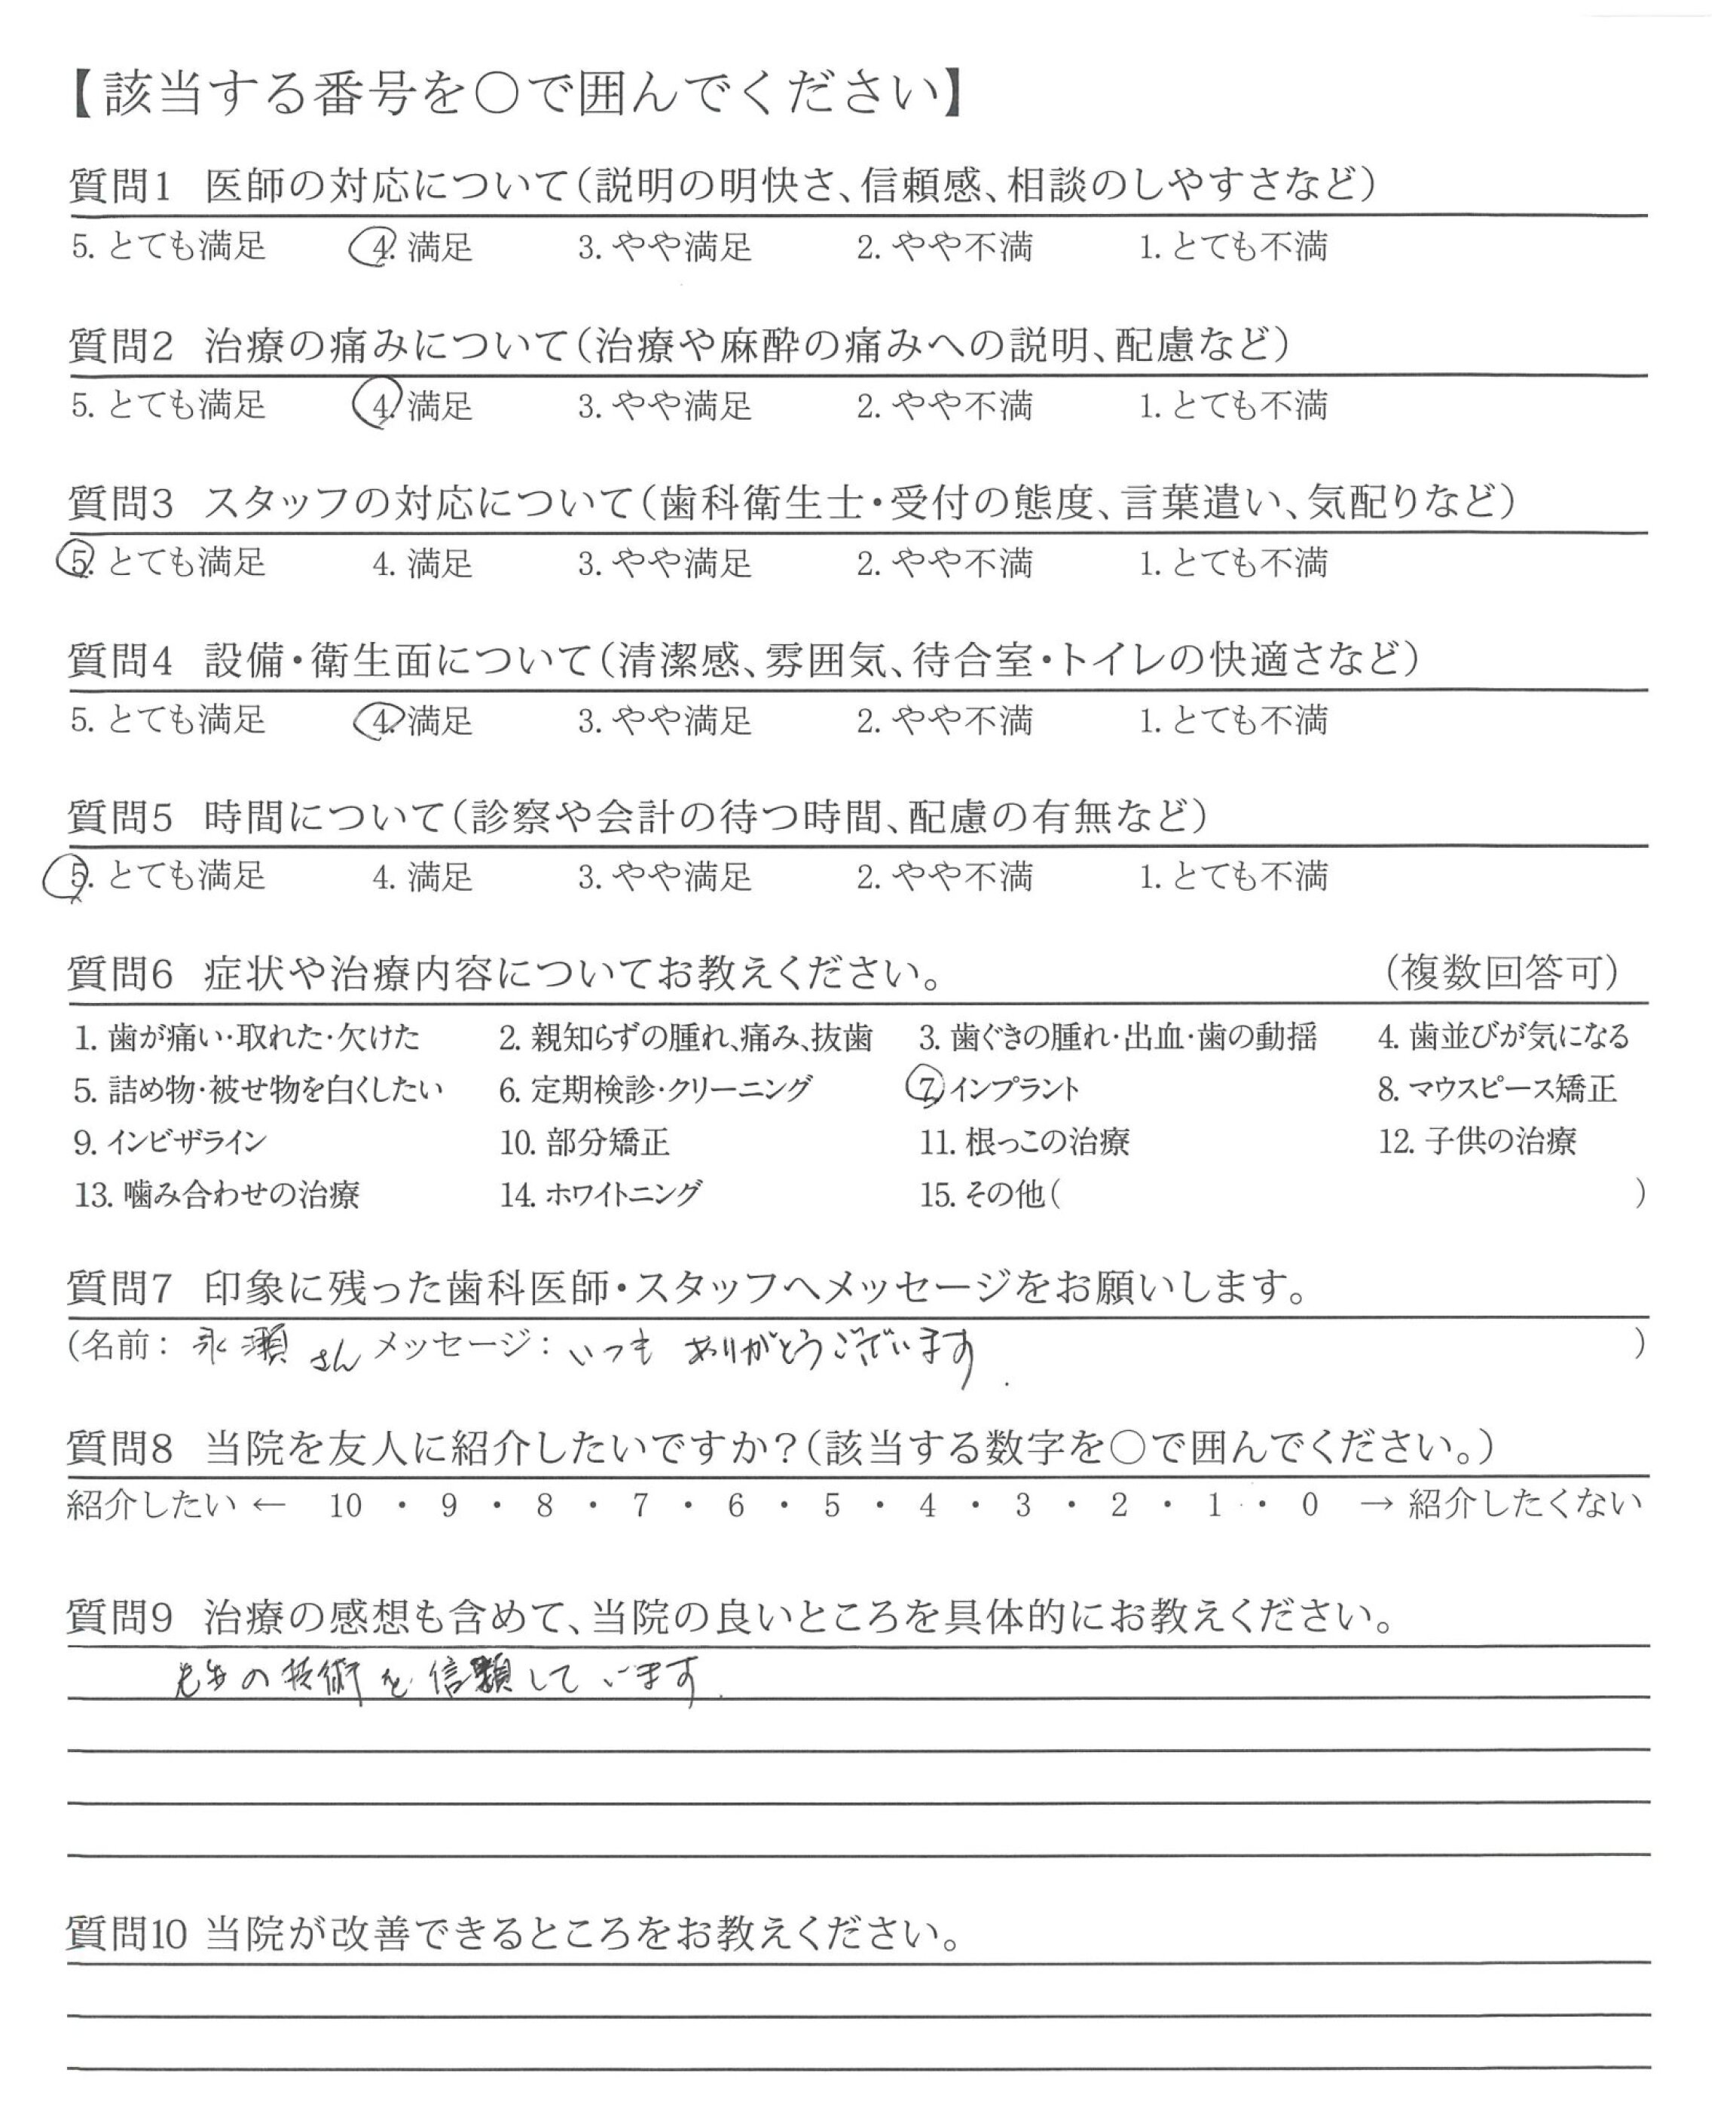 【該当する番号を○で囲んでください】
質問1 医師の対応について(説明の明快さ、信頼感、相談のしやすさなど)
5. とても満足 4. 満足 3. やや満足 2. やや不満 1. とても不満
質問2 治療の痛みについて(治療や麻酔の痛みへの説明、配慮など)
5. とても満足 4. 満足 3. やや満足 2. やや不満 1. とても不満
質問3 スタッフの対応について(歯科衛生士・受付の態度、言葉遣い、気配りなど)
5. とても満足 4. 満足 3. やや満足 2. やや不満 1. とても不満
質問4 設備・衛生面について(清潔感、雰囲気、待合室・トイレの快適さなど)
5. とても満足 4. 満足 3. やや満足 2. やや不満 1. とても不満
質問5 時間について(診察や会計の待つ時間、配慮の有無など)
5. とても満足 4. 満足 3. やや満足 2. やや不満 1. とても不満
質問6 症状や治療内容についてお教えください。 (複数回答可)
1. 歯が痛い・取れた・欠けた 2. 親知らずの腫れ、痛み、抜歯 3. 歯ぐきの腫れ・出血・歯の動揺 4. 歯並びが気になる
5. 詰め物・被せ物を白くしたい 6. 定期検診・クリーニング 7. インプラント 8. マウスピース矯正
9. インビザライン 10. 部分矯正 11. 根っこの治療 12. 子供の治療
13. 噛み合わせの治療 14. ホワイトニング 15. その他( )
質問7 印象に残った歯科医師・スタッフへメッセージをお願いします。
(名前: 永瀬さん メッセージ: いつも ありがとうございます. )
質問8 当院を友人に紹介したいですか?(該当する数字を○で囲んでください。)
紹介したい ← 10 ・ 9 ・ 8 ・ 7 ・ 6 ・ 5 ・ 4 ・ 3 ・ 2 ・ 1 ・ 0 → 紹介したくない
質問9 治療の感想も含めて、当院の良いところを具体的にお教えください。
の技術を信頼しています.
質問10 当院が改善できるところをお教えください。